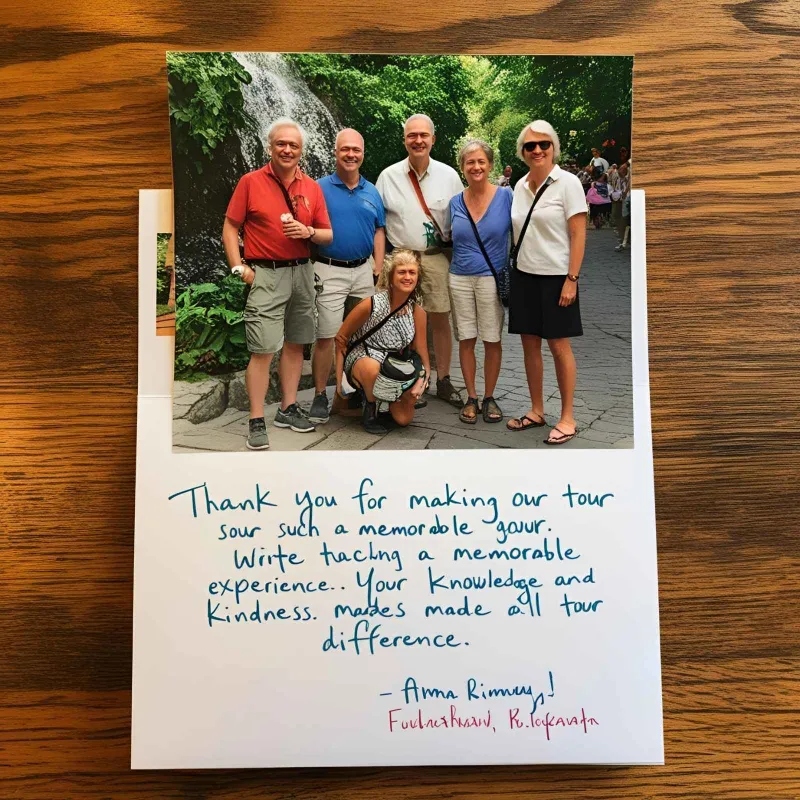 Thank you for making our tour
sour such a memorable gour.
Write hacing a memorable
experience.. Your knowledge and
Kindness. mades made all tour
difference.
- Anna